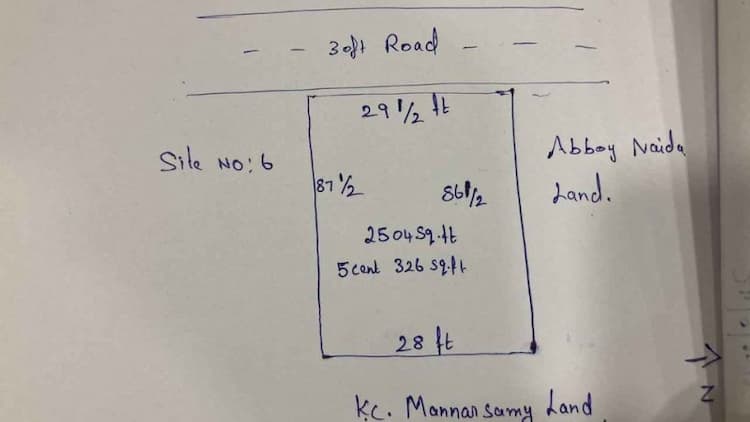 30ft Road
29 1/2 ft
Site No: 6
Abboy Naidu
Land.
87 1/2
86 1/2
2504 Sq.ft
5 cent 326 sq.ft
28 ft
Z
K.C. Mannarsamy Land